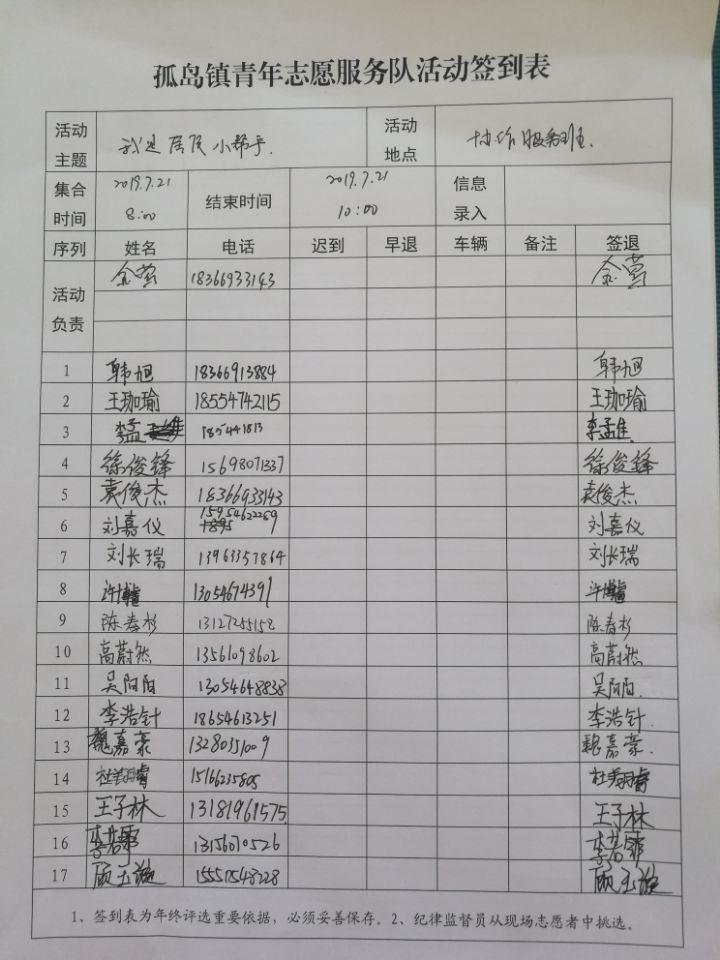 孤岛镇青年志愿服务队活动签到表
活动主题 我是居民小帮手. 活动地点 协作服务班.
集合时间 2019.7.21 8:00 结束时间 2019.7.21 10:00 信息录入
序列 姓名 电话 迟到 早退 车辆 备注 签退
活动负责 金莹 18366933143 金莹
1 韩旭 18366913884 韩旭
2 王珈瑜 18554742115 王珈瑜
3 李孟 185441813 李孟隹
4 徐俊锋 15698071337 徐俊锋
5 袁俊杰 18366933143 袁俊杰
6 刘嘉仪 15954622289 刘嘉仪
7 刘长瑞 13963357864 刘长瑞
8 许博 13054674391 许博
9 陈春杉 13127255158 陈春杉
10 高蔚然 13561098602 高蔚然
11 吴阳阳 13054648838 吴阳阳.
12 李浩针 18654613251 李浩针.
13 魏嘉豪 13280351009 魏嘉豪.
14 杜 15166235805 杜
15 王子林 13181961575. 王子林
16 李若霏 13156070526 李若霏
17 顾玉璇 15551548228 顾玉璇
1、签到表为年终评选重要依据，必须妥善保存。2、纪律监督员从现场志愿者中挑选。